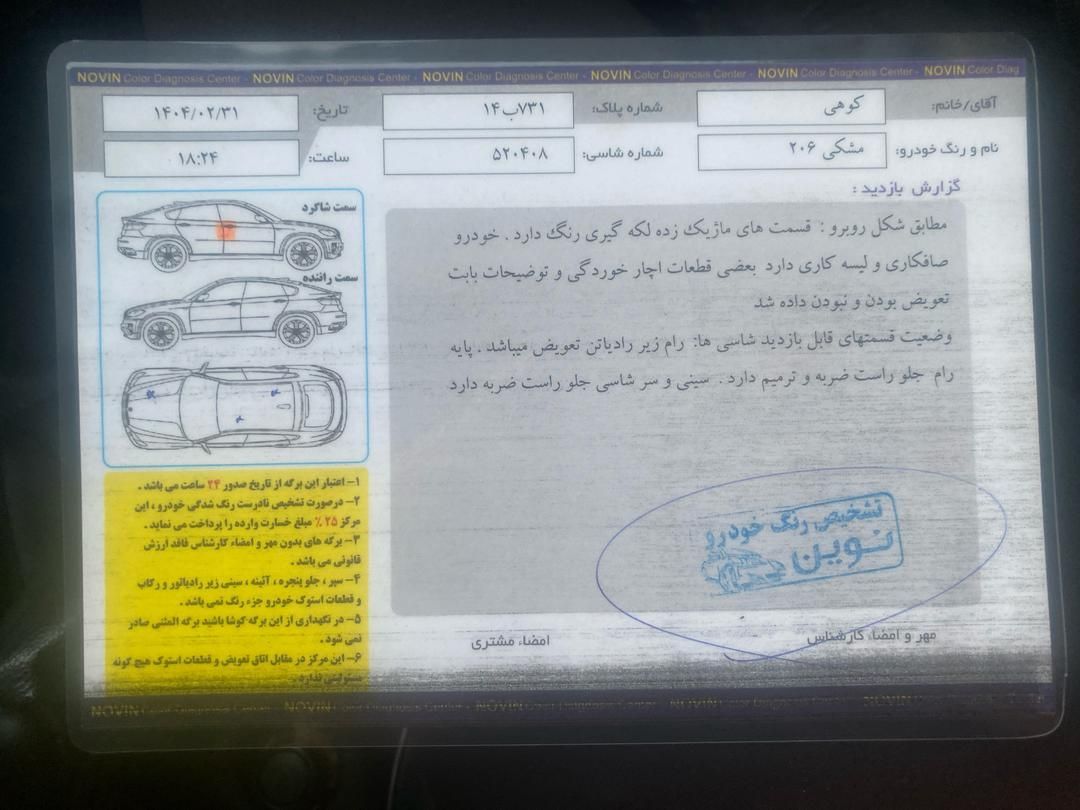 NOVIN Color Diagnosis Center - NOVIN Color Diagnosis Center - NOVIN Color Diagnosis Center - NOVIN Color Diagnosis Center - NOVIN Color Diagnosis Center - NOVIN Color Diag
آقای/خانم: کوهی شماره پلاک: ۷۳۱ب۱۴ تاریخ: ۱۴۰۴/۰۲/۳۱
نام و رنگ خودرو: مشکی ۲۰۶ شماره شاسی: ۵۲۰۴۰۸ ساعت: ۱۸:۲۴
گزارش بازدید :
مطابق شکل روبرو : قسمت های ماژیک زده لکه گیری رنگ دارد . خودرو
صافکاری و لیسه کاری دارد بعضی قطعات اچار خوردگی و توضیحات بابت
تعویض بودن و نبودن داده شد
وضعیت قسمتهای قابل بازدید شاسی ها: رام زیر رادیاتن تعویض میباشد . پایه
رام جلو راست ضربه و ترمیم دارد . سینی و سر شاسی جلو راست ضربه دارد
سمت شاگرد
سمت راننده
۱- اعتبار این برگه از تاریخ صدور ۲۴ ساعت می باشد .
۲- درصورت تشخیص نادرست رنگ شدگی خودرو ، این
مرکز ۲۵ ٪ مبلغ خسارت وارده را پرداخت می نماید .
۳- برگه های بدون مهر و امضاء کارشناس فاقد ارزش
قانونی می باشد .
۴- سپر ، جلو پنجره ، آئینه ، سینی زیر رادیاتور و رکاب
و قطعات استوک خودرو جزء رنگ نمی باشد .
۵- در نگهداری از این برگه کوشا باشید برگه المثنی صادر
نمی شود .
۶- این مرکز در مقابل اتاق تعویض و قطعات استوک هیچ گونه
مسئولیتی ندارد .
تشخیص رنگ خودرو
نوین
مهر و امضاء کارشناس
امضاء مشتری
NOVIN Color Diagnosis Center - NOVIN Color Diagnosis Center - NOVIN Color Diagnosis Center - NOVIN Color Diagnosis Center - NOVIN